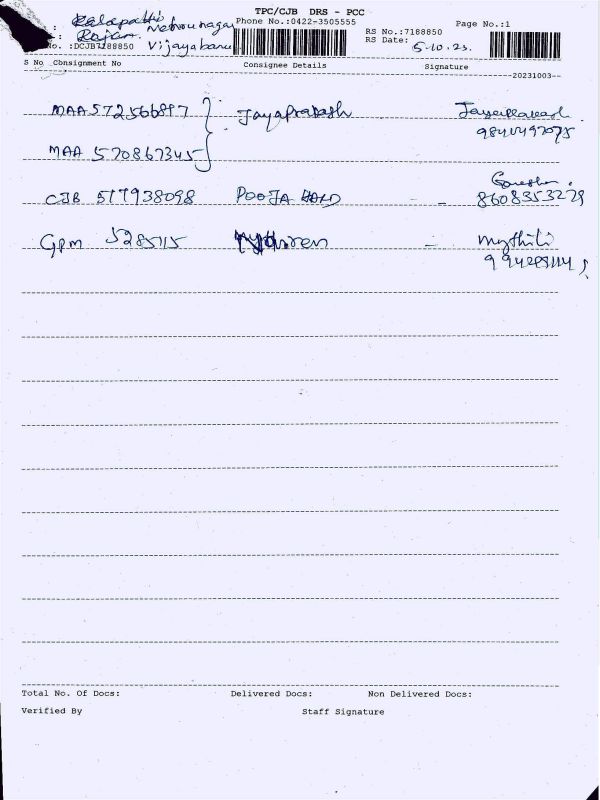 TPC/CJB DRS - PCC
: Kalapatti Nehrunagar Phone No.:0422-3505555 Page No.:1
: Rajan RS No.:7188850
No. :DCJB7188850 Vijayabanu RS Date: 5-10-23.
S No Consignment No Consignee Details Signature
--20231003--
MAA572566897 Jayaprakash Jayaprakash
MAA 570867345
CJB 517938098 POOJA - 8608353229
GPM 5285115 - mythili
Total No. Of Docs: Delivered Docs: Non Delivered Docs:
Verified By Staff Signature